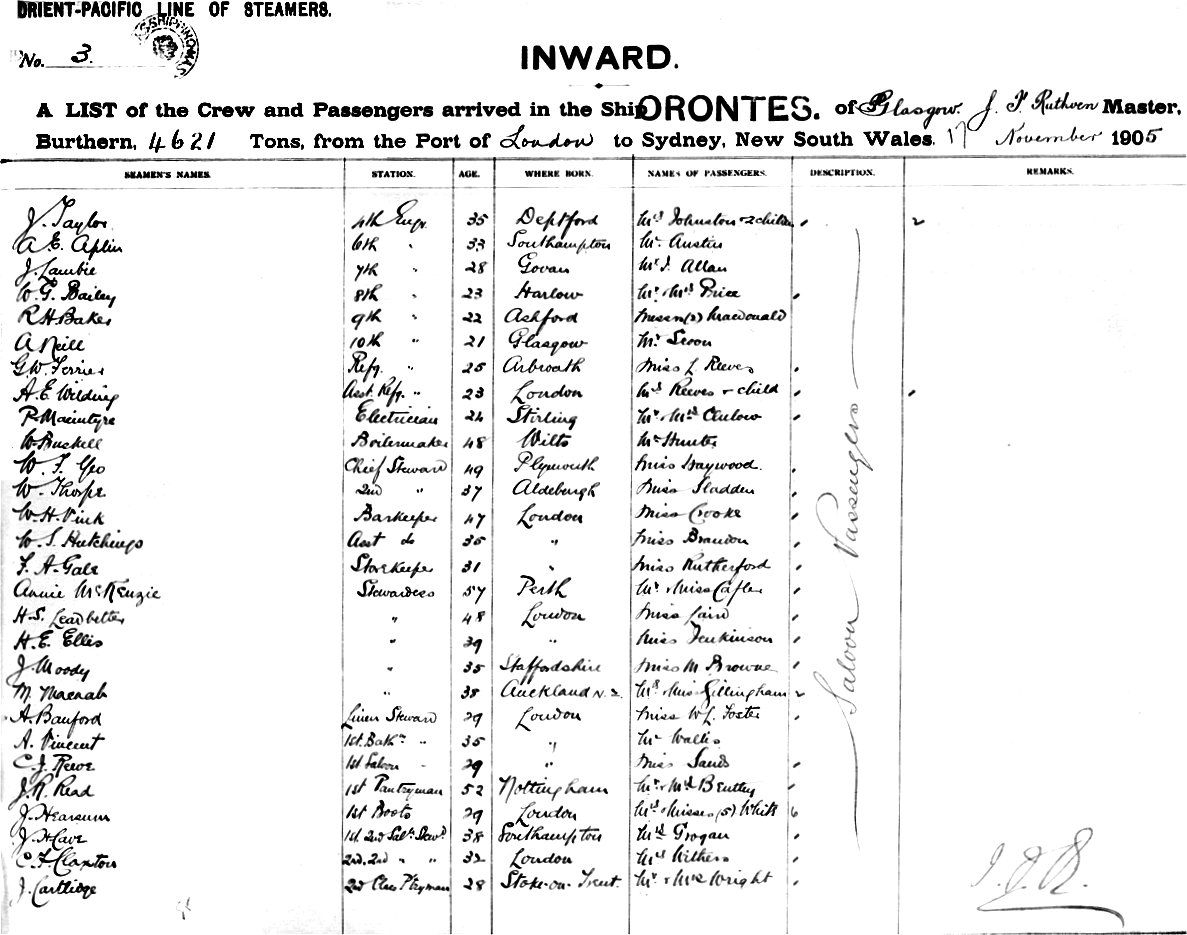 ORIENT-PACIFIC LINE OF STEAMERS.
No. 3.
INWARD.
A LIST of the Crew and Passengers arrived in the Ship ORONTES. of Glasgow. J. F. Ruthven Master,
Burthern, 4621 Tons, from the Port of London to Sydney, New South Wales. 17 November 1905
SEAMEN'S NAMES. STATION. AGE. WHERE BORN. NAMES OF PASSENGERS. DESCRIPTION. REMARKS.
J. Taylor 4th Engr. 35 Deptford Mrs Johnston & 2 children 2
A. E. Aplin 6th " 33 Southampton Mr. Austin
J. Lambie 7th " 28 Govan Mr J. Allan
W. G. Bailey 8th " 23 Harlow Mr & Mrs Price
R. H. Baker 9th " 22 Ashford Misses (2) Macdonald
A Neill 10th " 21 Glasgow Mr
G. W. Ferrier Refg. " 25 Arbroath Miss L Reeves
A. E. Wilding Asst. Refg. " 23 London Mrs Reeves & child
P. Macintyre Electrician 24 Stirling Mr & Mrs
W. Buskell Boilermaker 48 Wilts Mr Hunter
W. F. Geo Chief Steward 49 Plymouth Miss Haywood.
W. Thorpe 2nd " 37 Aldeburgh Miss Sladden
W. H. Vink Barkeeper 47 London Miss Crooke
W. S. Hutchings Asst do 35 " Miss Brandon
F. A. Gale Storekeeper 31 " Miss Rutherford
Annie McKenzie Stewardess 57 Perth Mr & Miss
H. S. Leadbetter " 48 London Miss Laird
H. E. Ellis " 39 " Miss Jenkinson
J. Moody " 35 Staffordshire Miss M Browne
M. Macnab " 38 Auckland N.Z. Mr & Miss Gillingham 2
A. Banford Linen Steward 29 London Miss W. L. Foster
A. Vincent 1st. Bath " 35 " Mr Wallis
C. J. Reeve 1st Saloon " 29 " Miss Sands
J. R. Read 1st Pantryman 52 Nottingham Mr & Mrs Bentley
J. Hearsum 1st Boots 29 London Mrs & Misses (5) White 6
J. H. Cave 1st 2nd Saln. Stewd. 38 Southampton Mrs Grogan
C. F. Claxton 2nd. 2nd " " 32 London Mrs Withers
J. Cartlidge 2nd Class P'tryman 28 Stoke-on-Trent. Mr & Mrs Wright
Saloon Passengers